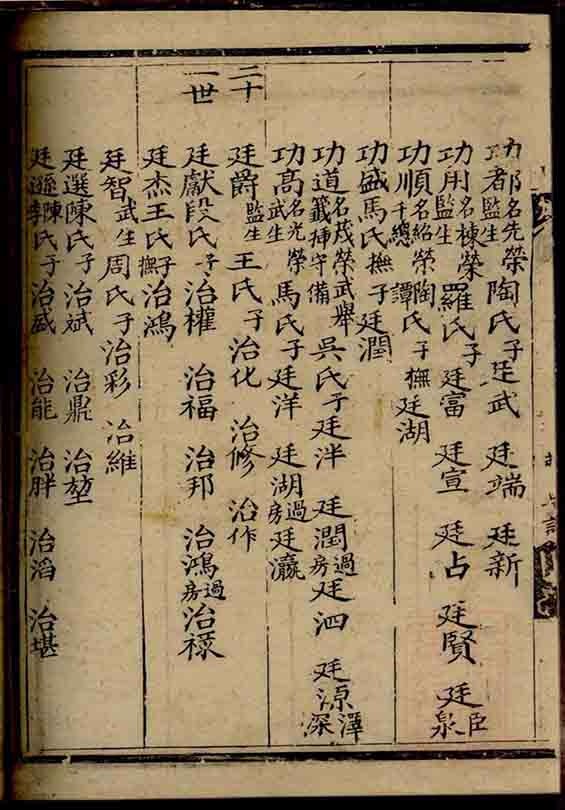 功都名先榮監生陶氏子廷武 廷端 廷新
功用名棟榮監生羅氏子廷富 廷宣 廷占 廷賢 廷臣 泉
功順名紹榮千總陶氏譚氏子撫廷湖
功盛馬氏撫子廷潤
功道名茂榮武舉籤揀守備吳氏子廷泮 廷潤過房廷泗 廷源澤深
功高名光榮武生馬氏子廷洋 廷湖過房廷瀛
二十一世
廷爵監生王氏子治化 治修 治作
廷獻段氏子治權 治福 治邦 治鴻過房治祿
廷杰王氏撫子治鴻
廷智武生周氏子治彩 治維
廷選陳氏子治斌 治鼎 治堃
廷遜陳氏李氏子治威 治能 治胖 治滔 治堪